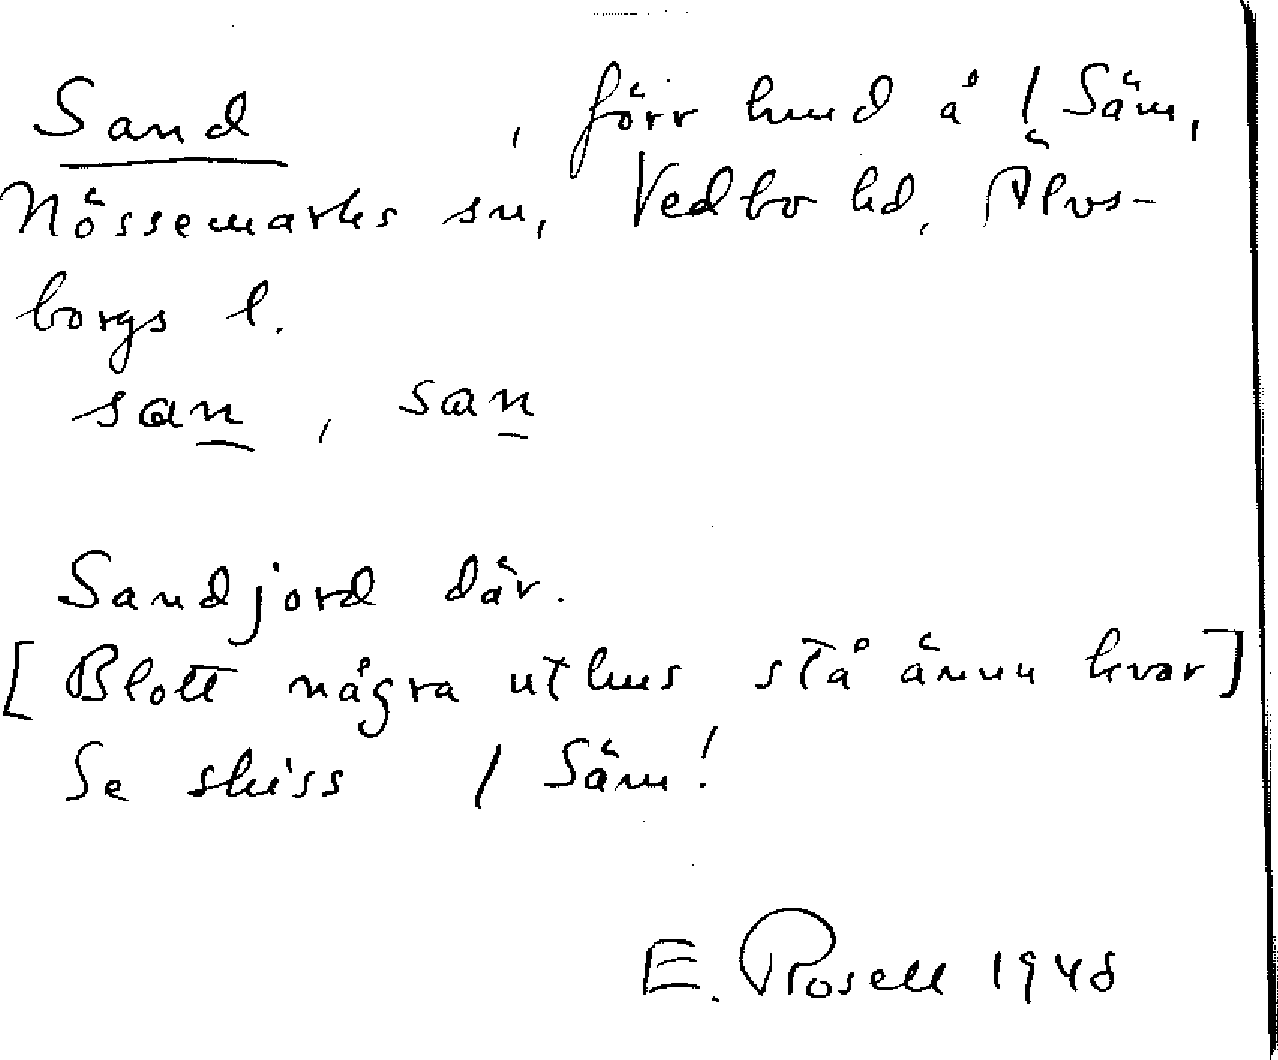 Sand, förr lmd å 1 Säm,
Nössemarks sn, Vedbo hd, Älvs-
borgs l.
san, san
Sandjord där.
[Blott några uthus stå ännu kvar]
Se skiss 1 Säm!
E. Rosell 1948